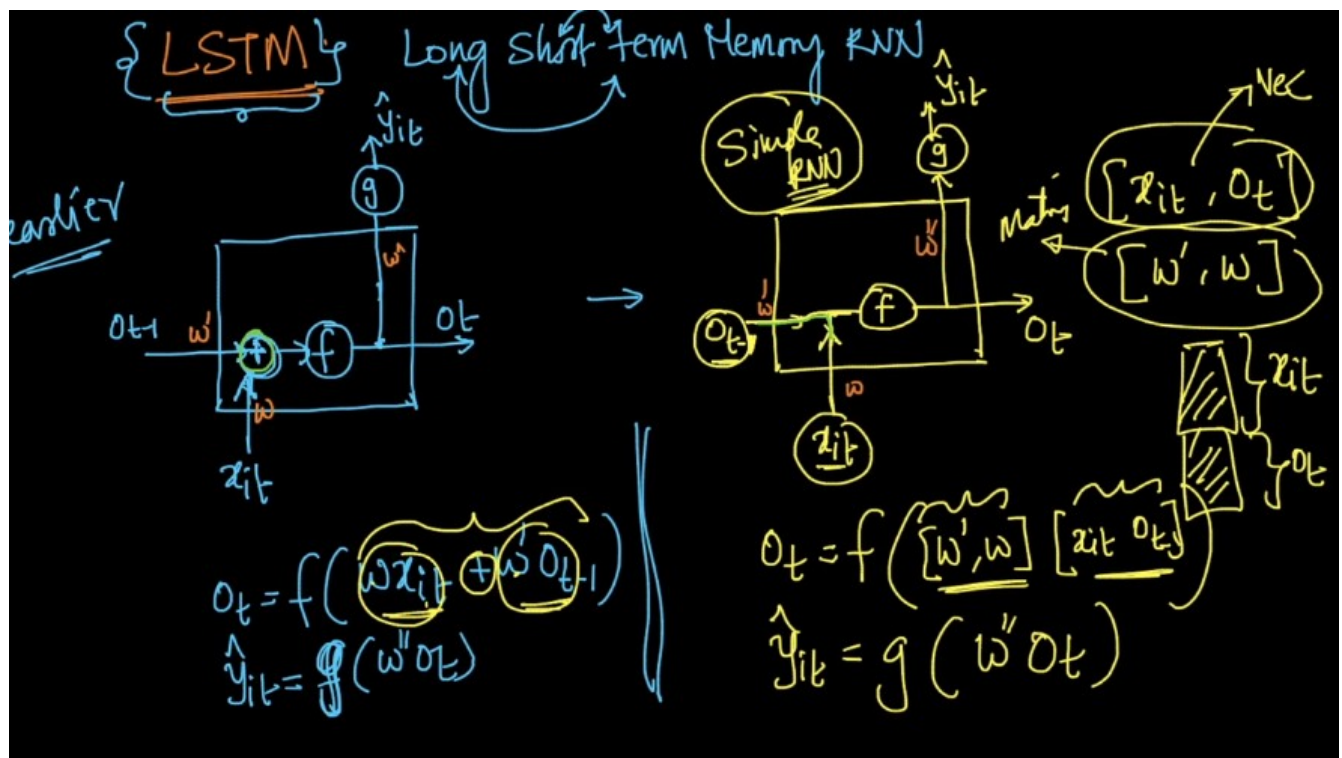 {LSTM} Long Short Term Memory RNN
ŷit
g
earlier
w''
Ot-1
w'
+
f
Ot
w
xit
Ot = f(wxit + w'Ot-1)
ŷit = g(w''Ot)
→
Simple RNN
ŷit
g
w''
w'
Ot-1
f
Ot
w
xit
Vec
[xit, Ot]
[w', w]
xit
Ot
Ot = f([w', w] [xit Ot-1])
ŷit = g(w''Ot)